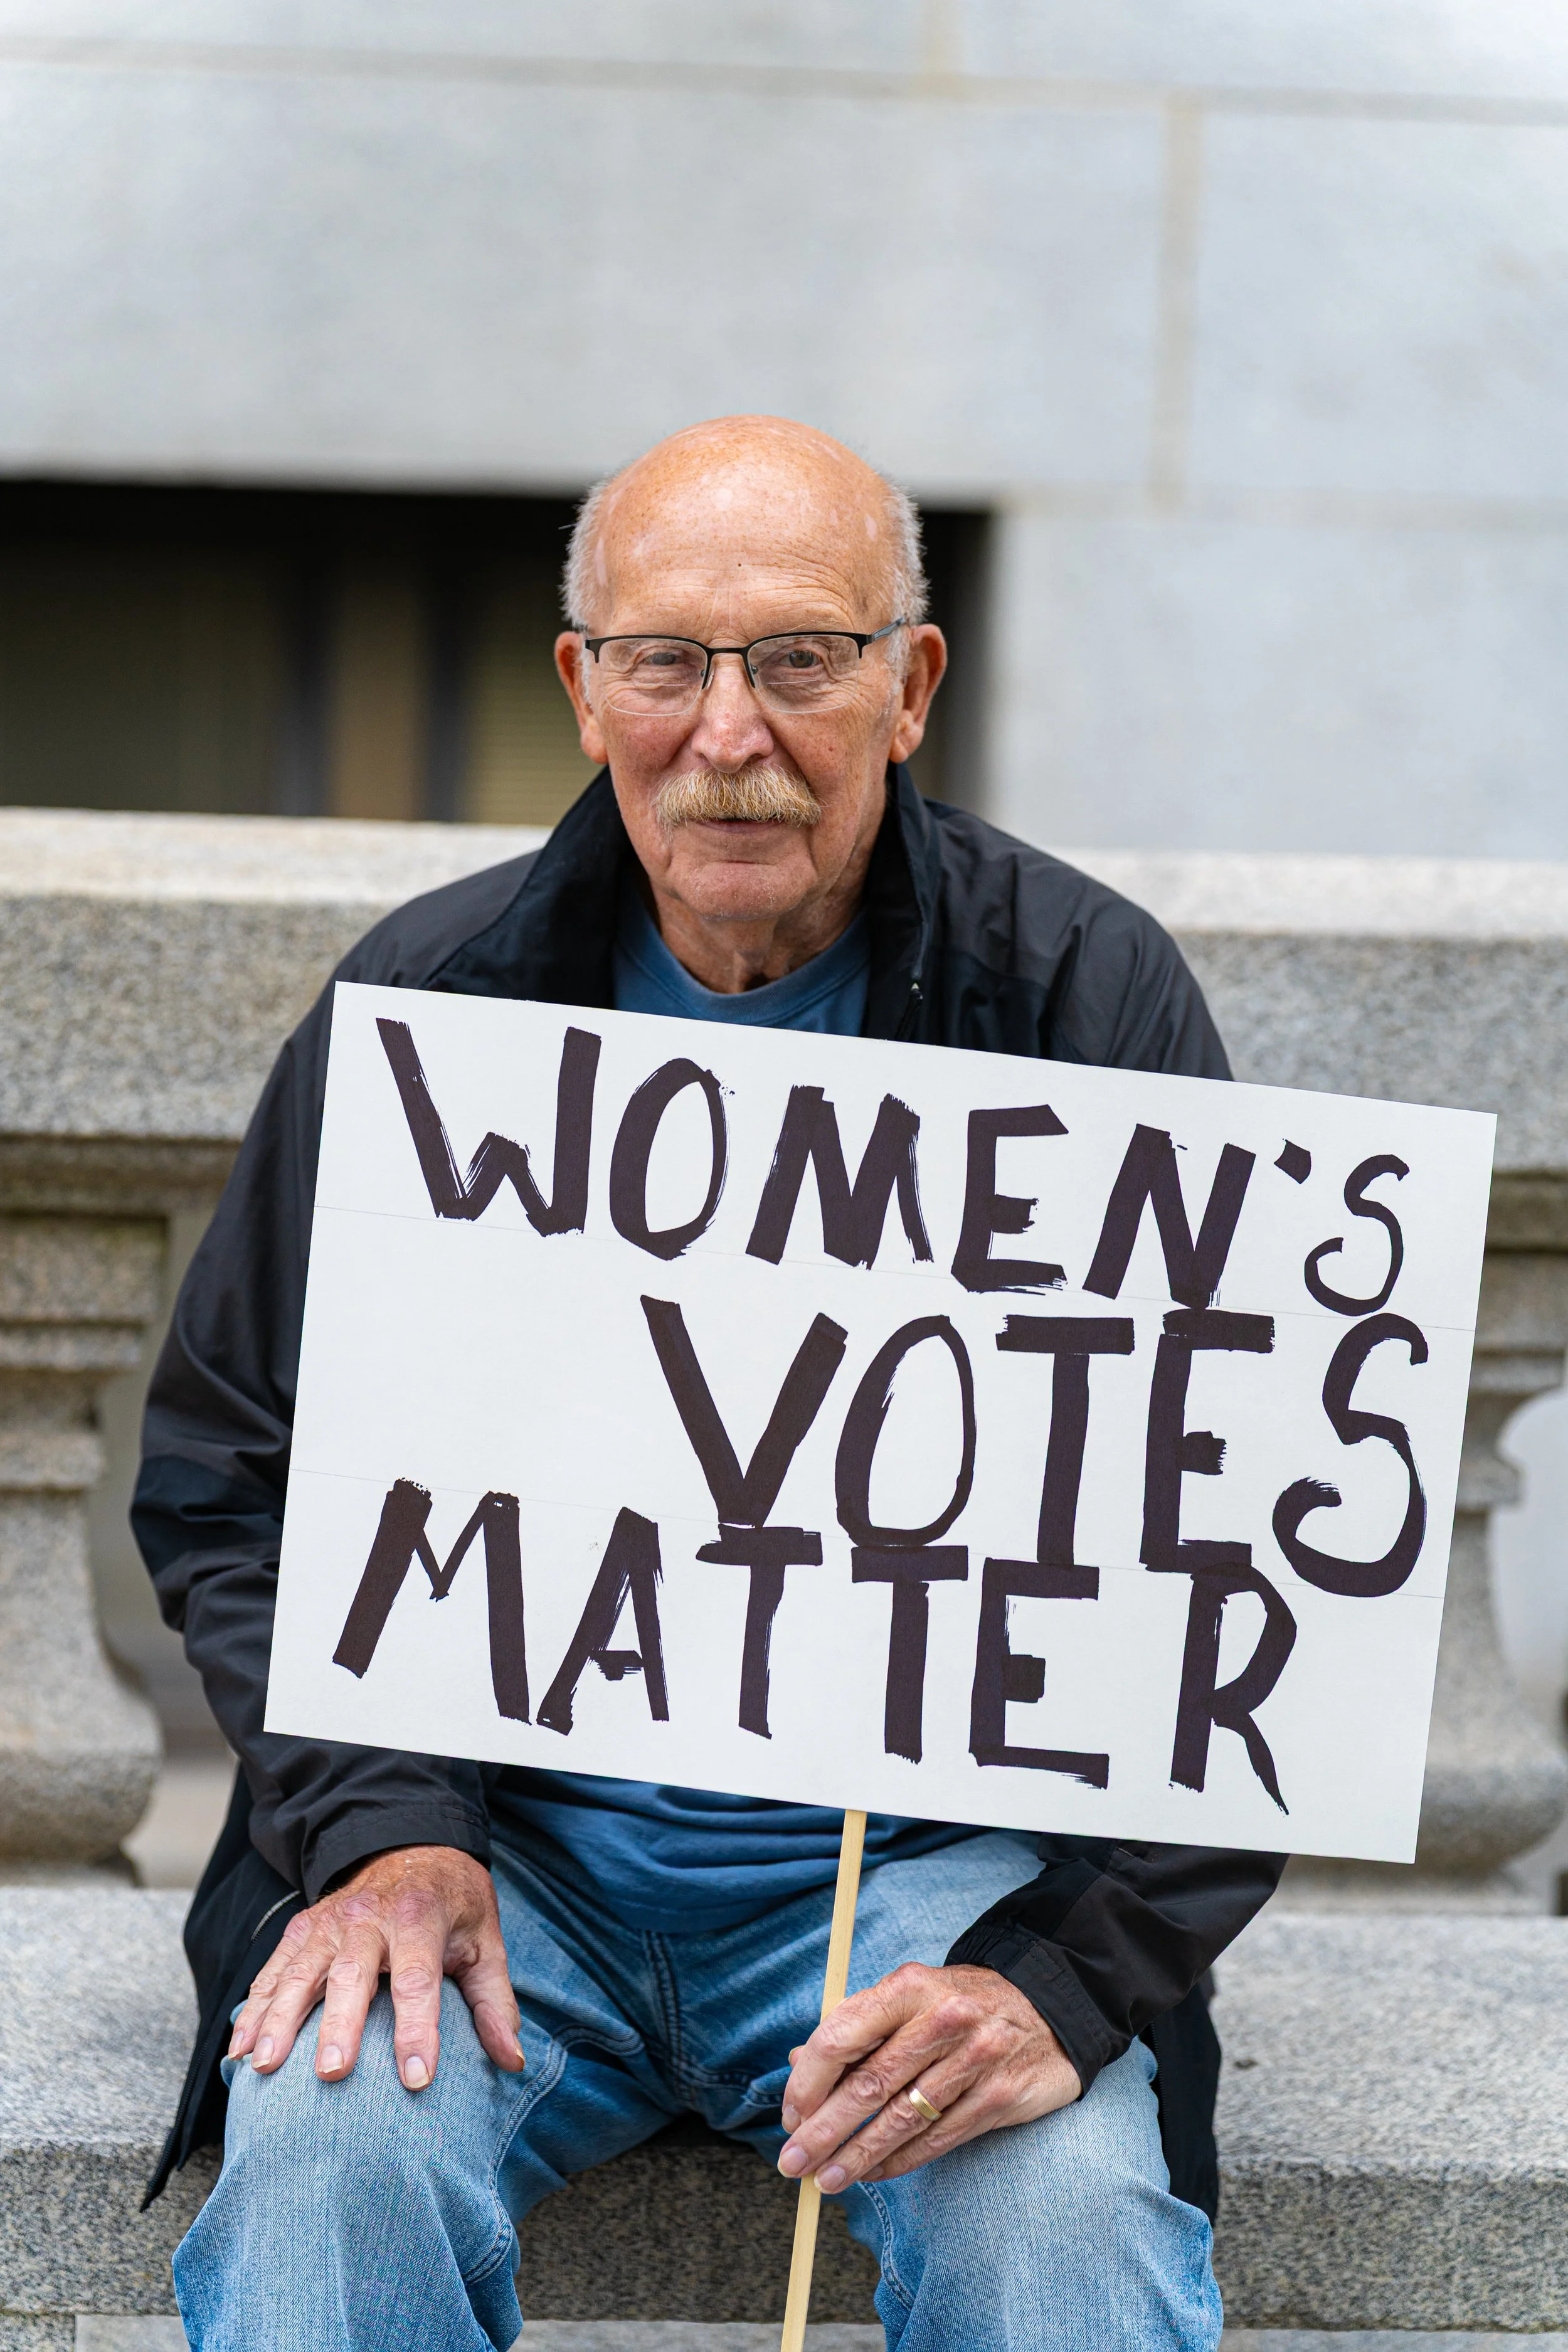 WOMEN'S
VOTES
MATTER